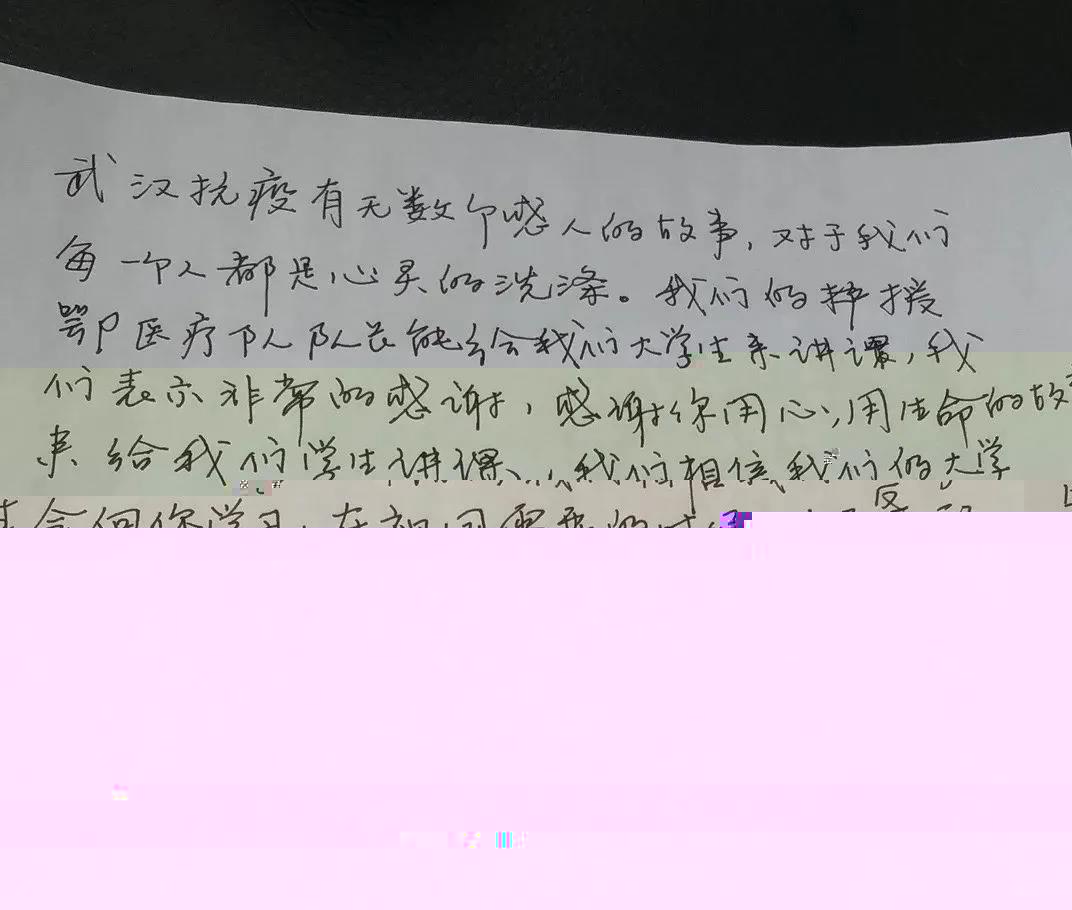 武汉抗疫有无数个感人的故事，对于我们
每一个人都是心灵的洗涤。我们的援
鄂医疗队队长能给我们大学生来讲课，我
们表示非常的感谢，感谢你用心，用生命的故
来给我们学生讲课，我们相信我们的大学
会向你学习，在祖国需要的时